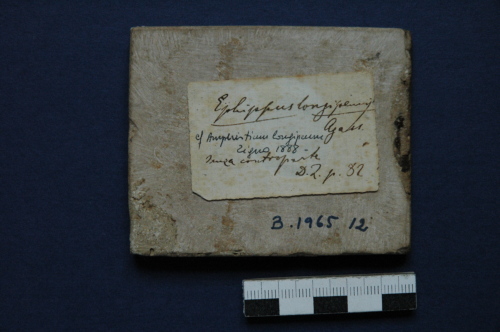 Ephippus longipennis
Agass.
cf Amphistium longipenne
Zigno 1888
senza controparte
D.Z. p. 32
B. 1965 12